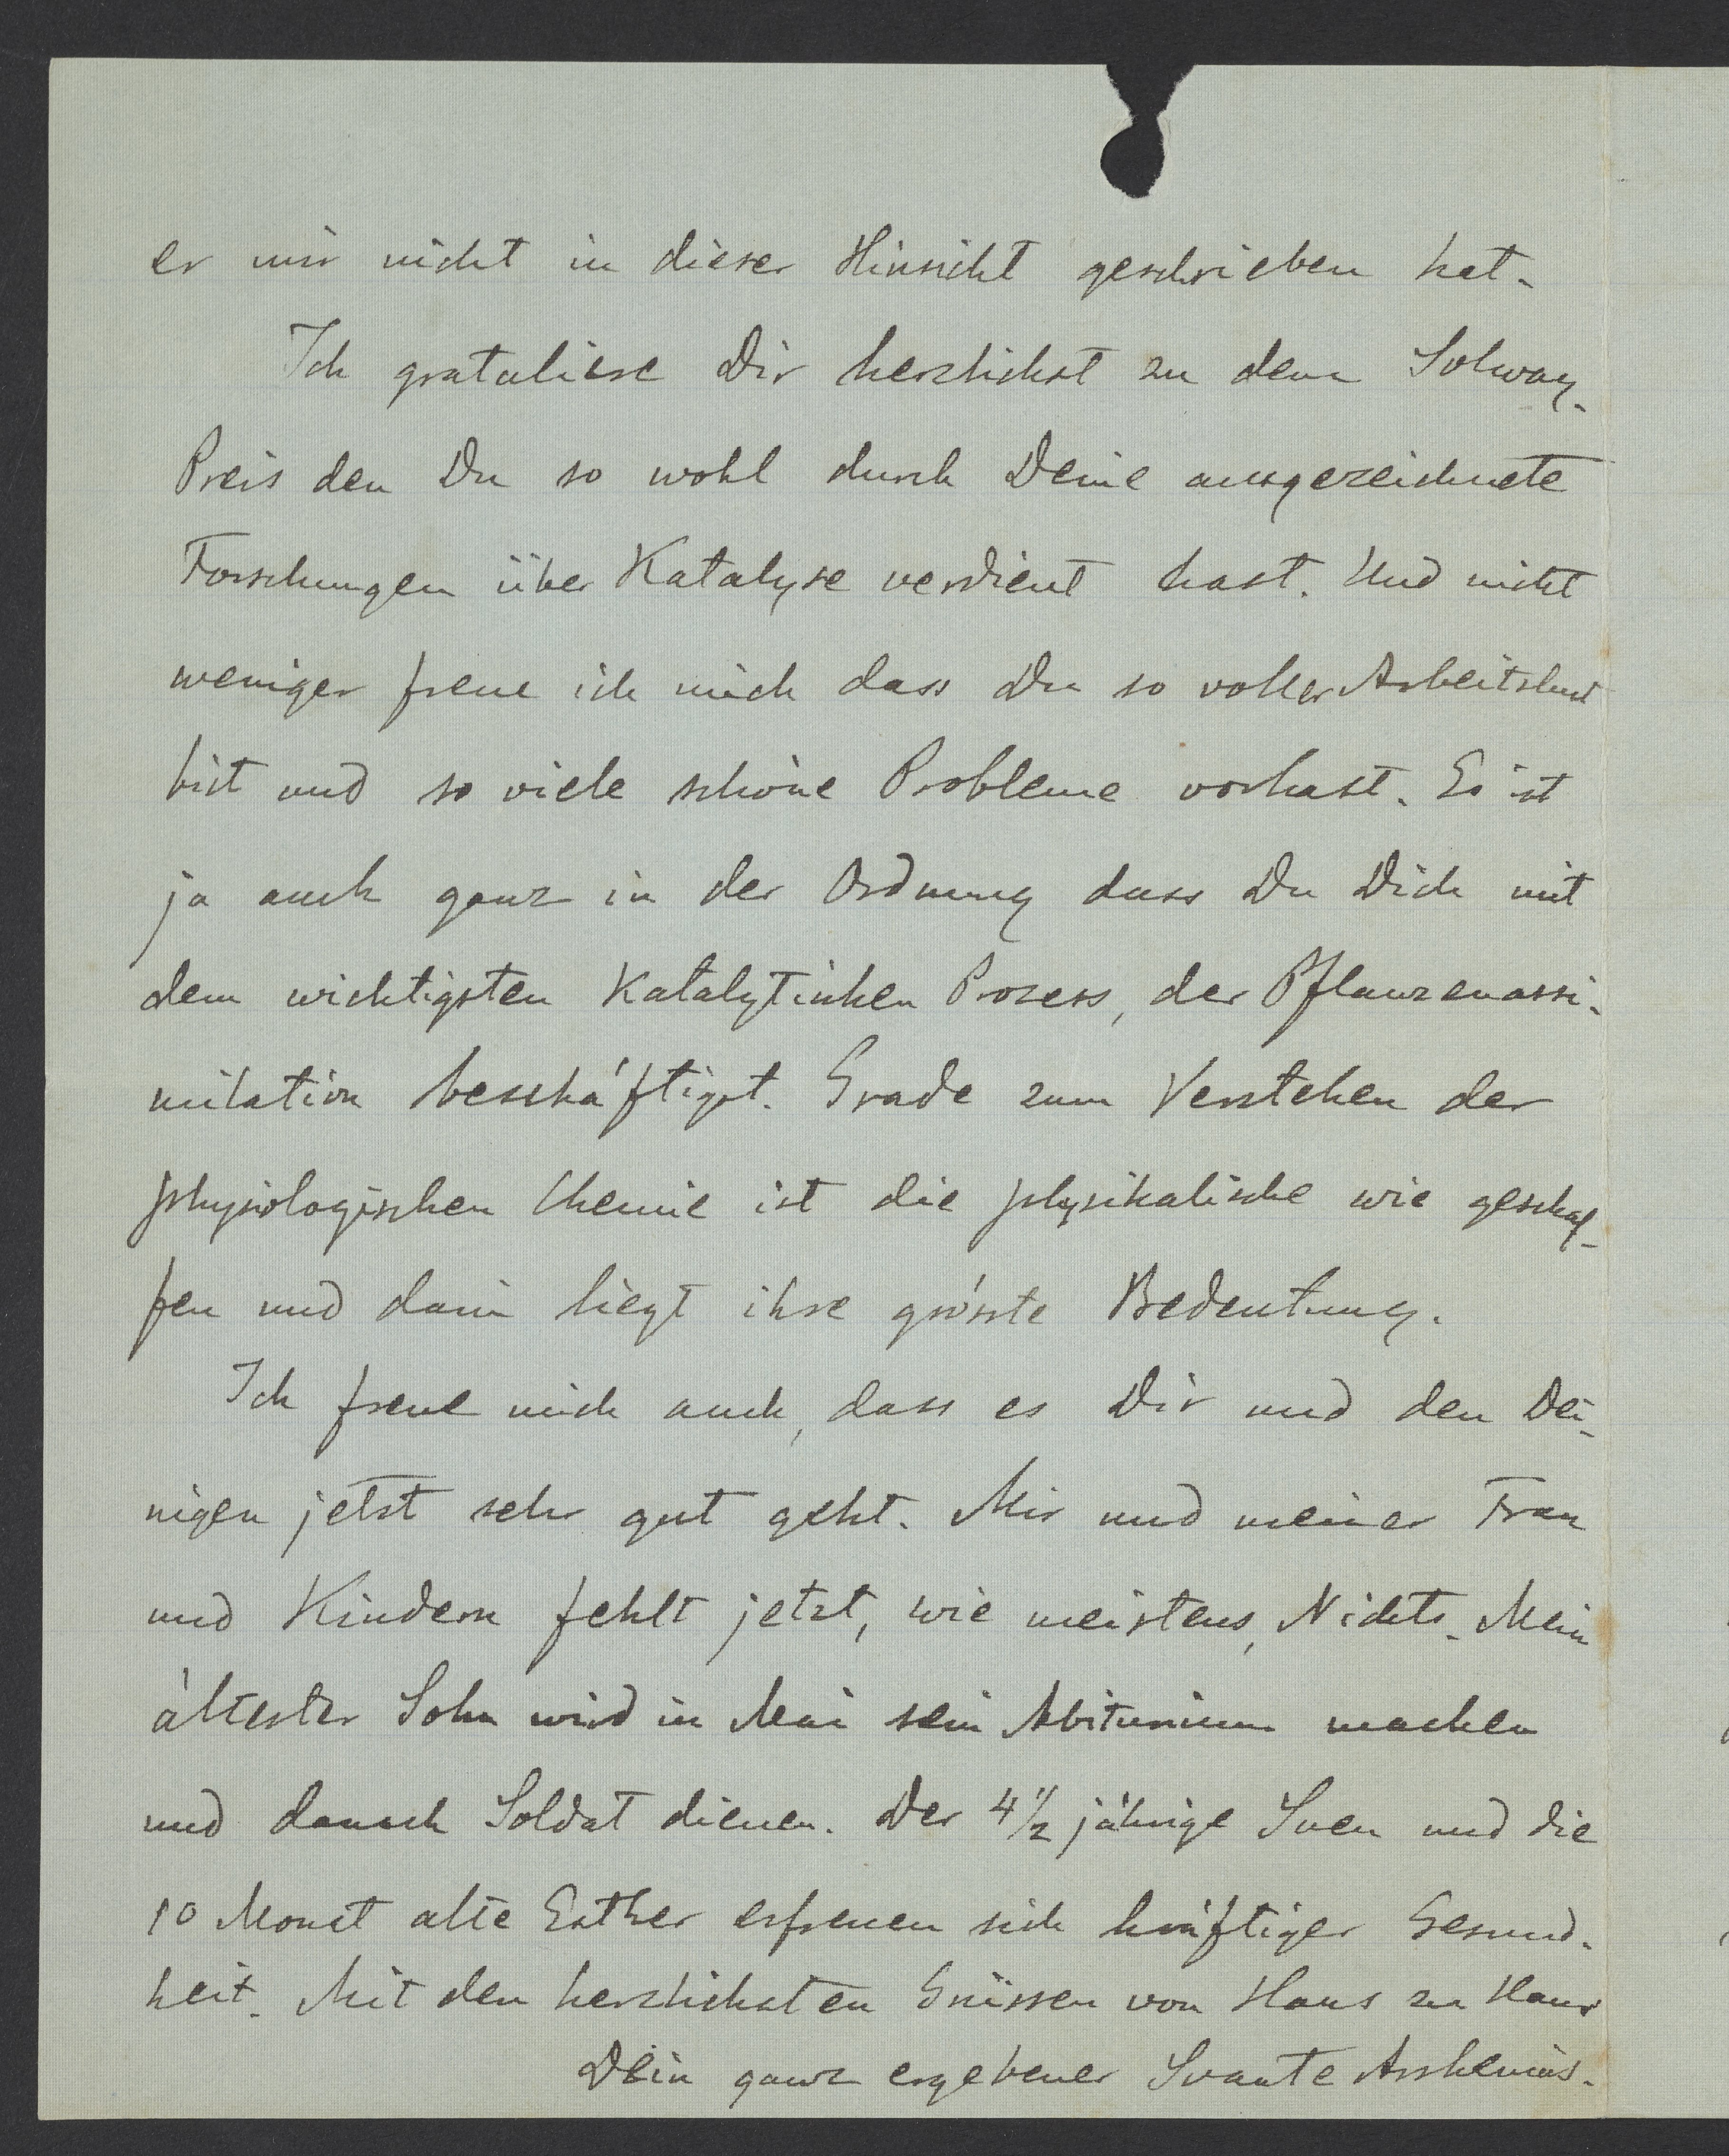 er mir nicht in dieser Hinsicht geschrieben hat.
Ich gratuliere Dir herzlichst zu dem Solway-
Preis den Du so wohl durch Deine ausgezeichnete
Forschungen über Katalyse verdient hast. Und nicht
weniger freue ich mich dass Du so voller Arbeitslust
bist und so viele schöne Probleme vorhast. Es ist
ja auch ganz in der Ordnung dass Du Dich mit
dem wichtigsten Katalytischen Prozess, der Pflanzenassi-
milation beschäftigst. Grade zum Verstehen der
physiologischen Chemie ist die physikalische wie geschaf-
fen und darin liegt ihre grösste Bedeutung.
Ich freue mich auch, dass es Dir und den Dei-
nigen jetzt sehr gut geht. Mir und meiner Frau
und Kindern fehlt jetzt, wie meistens, Nichts. Mein
ältester Sohn wird in Mai sein Abiturium machen
und danach Soldat dienen. Der 4½ jährige Sven und die
10 Monat alte Esther erfreuen sich kräftiger Gesund-
heit. Mit den herzlichsten Grüssen von Haus zu Haus
Dein ganz ergebener Svante Arrhenius.